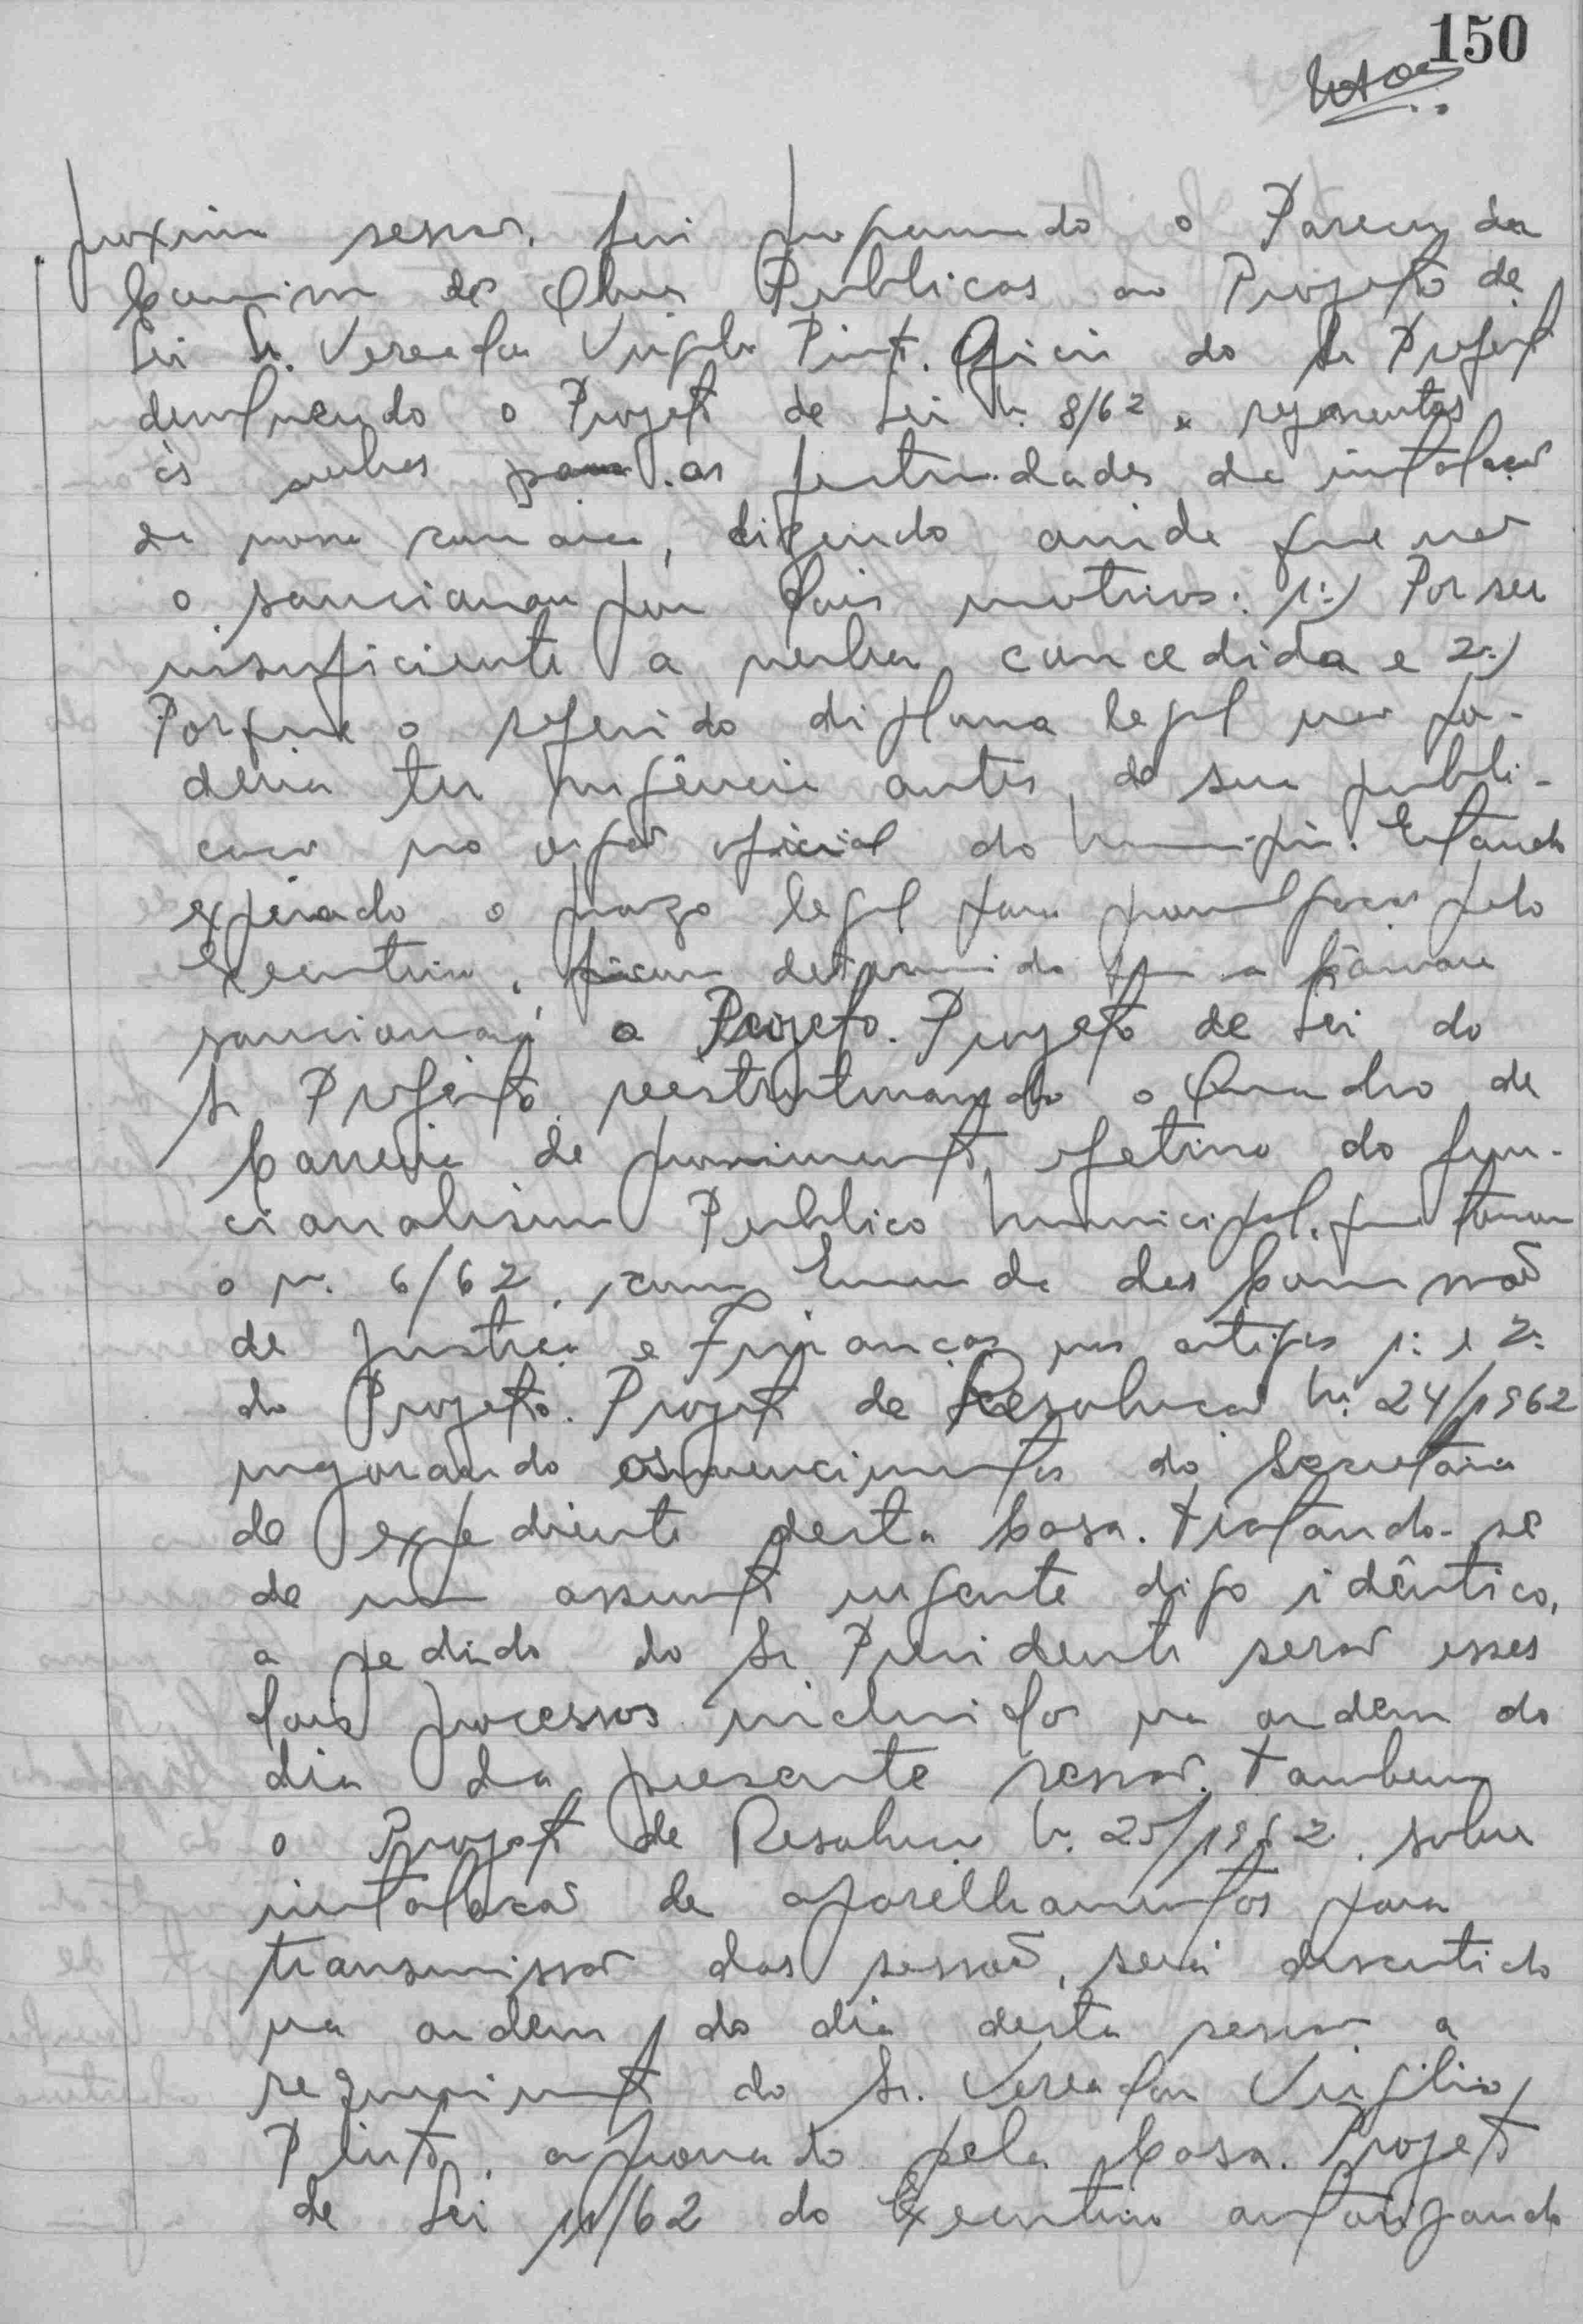 150
proxima sessão. foi o Parecer da
Comissão de Obras Publicas ao Projeto de
Lei Sr. Vereador Virgilio Pinto. Oficio do Sr Prefeito
devolvendo o Projeto de Lei n. 8/62, referentes
às verbas para as festividades da instalação
da nossa comarca, dizendo ainda que não
o sancionou por dois motivos: 1º) Por ser
insuficiente a verba concedida e 2º)
Porque o referido diploma legal não po-
deria ter vigência antes de sua publi-
cação no orgão oficial do Municipio. Estando
expirado o prazo legal para promulgação pelo
Executivo, ficou determinado que a Câmara
sancionará o Projeto. Projeto de Lei do
Sr Prefeito reestruturando o Quadro de
Carreira de provimento efetivo do fun-
cionalismo Publico Municipal, que tomou
o n. 6/62, com Emenda das Comissões
de Justiça e Finanças nos artigos 1º e 2º
do Projeto. Projeto de Resolução n. 24/1962
majorando os vencimentos do Secretario
de expediente desta Casa. Tratando-se
de um assunto urgente digo idêntico,
a pedido do Sr Presidente serão esses
dois processos incluidos na ordem do
dia da presente sessão. Tambem
o Projeto de Resolução n. 25/1962, sobre
instalação de aparelhamentos para
transmissão das sessões, será discutido
na ordem do dia desta sessão a
requerimento do Sr. Vereador Virgilio
Pinto, aprovado pela Casa. Projeto
de Lei 11/62 do Executivo autorizando